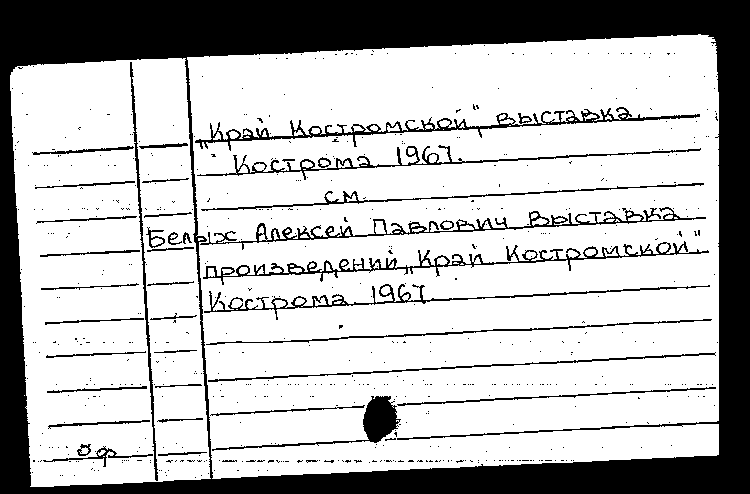 „Край Костромской", выставка.
Кострома 1967.
см.
Белых, Алексей Павлович Выставка
произведений „Край Костромской".
Кострома 1967